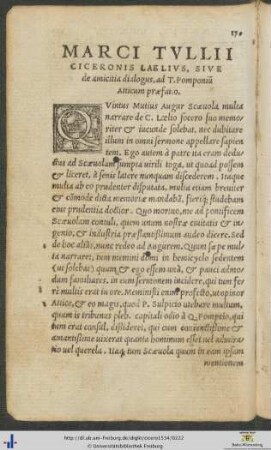 170
MARCI TVLLII
CICERONIS LAELIVS, SIVE
de amicitia dialogus, ad T. Pomponiũ
Atticum præfatio.
QVintus Mutius Augur Scæuola multa
narrare de C. Lælio socero suo memo
riter & iucunde solebat, nec dubitare
illum in omni sermone appellare sapien
tem. Ego autem à patre ita eram dedu-
ctus ad Scæuolam sumpta uirili toga, ut quoad possem
& liceret, à senis latere nunquam discederem. Itaque
multa ab eo prudenter disputata, multa etiam breuiter
& cõmode dicta memoriæ mandabã, fieriq; studebam
eius prudentia doctior. Quo mortuo, me ad pontificem
Scæuolam contuli, quem unum nostræ ciuitatis & in-
genio, & iustitia præstantissimum audeo dicere. Sed
de hoc aliàs, nunc redeo ad Augurem. Quum sæpe mul-
ta narraret, tum memini domi in hemicyclo sedentem
(ut solebat) quum & ego essem unà, & pauci admo-
dum familiares, in eum sermonem incidere, qui tum fe
rè multis erat in ore. Meministi enim profectò, ut opinor
Attice, & eo magis, quòd P. Sulpicio utebare multum,
quum is tribunus pleb. capitali odio à Q. Pompeio, qui
tum erat consul, dissideret, qui cum coniunctissime &
amantissime uixerat quanta hominum esset uel admira-
tio uel querela. Itaq; tum Scæuola quum in eam ipsam
mentionem
http://dl.ub.uni-freiburg.de/diglit/cicero1534/0352
© Universitätsbibliothek Freiburg
Baden-Württemberg